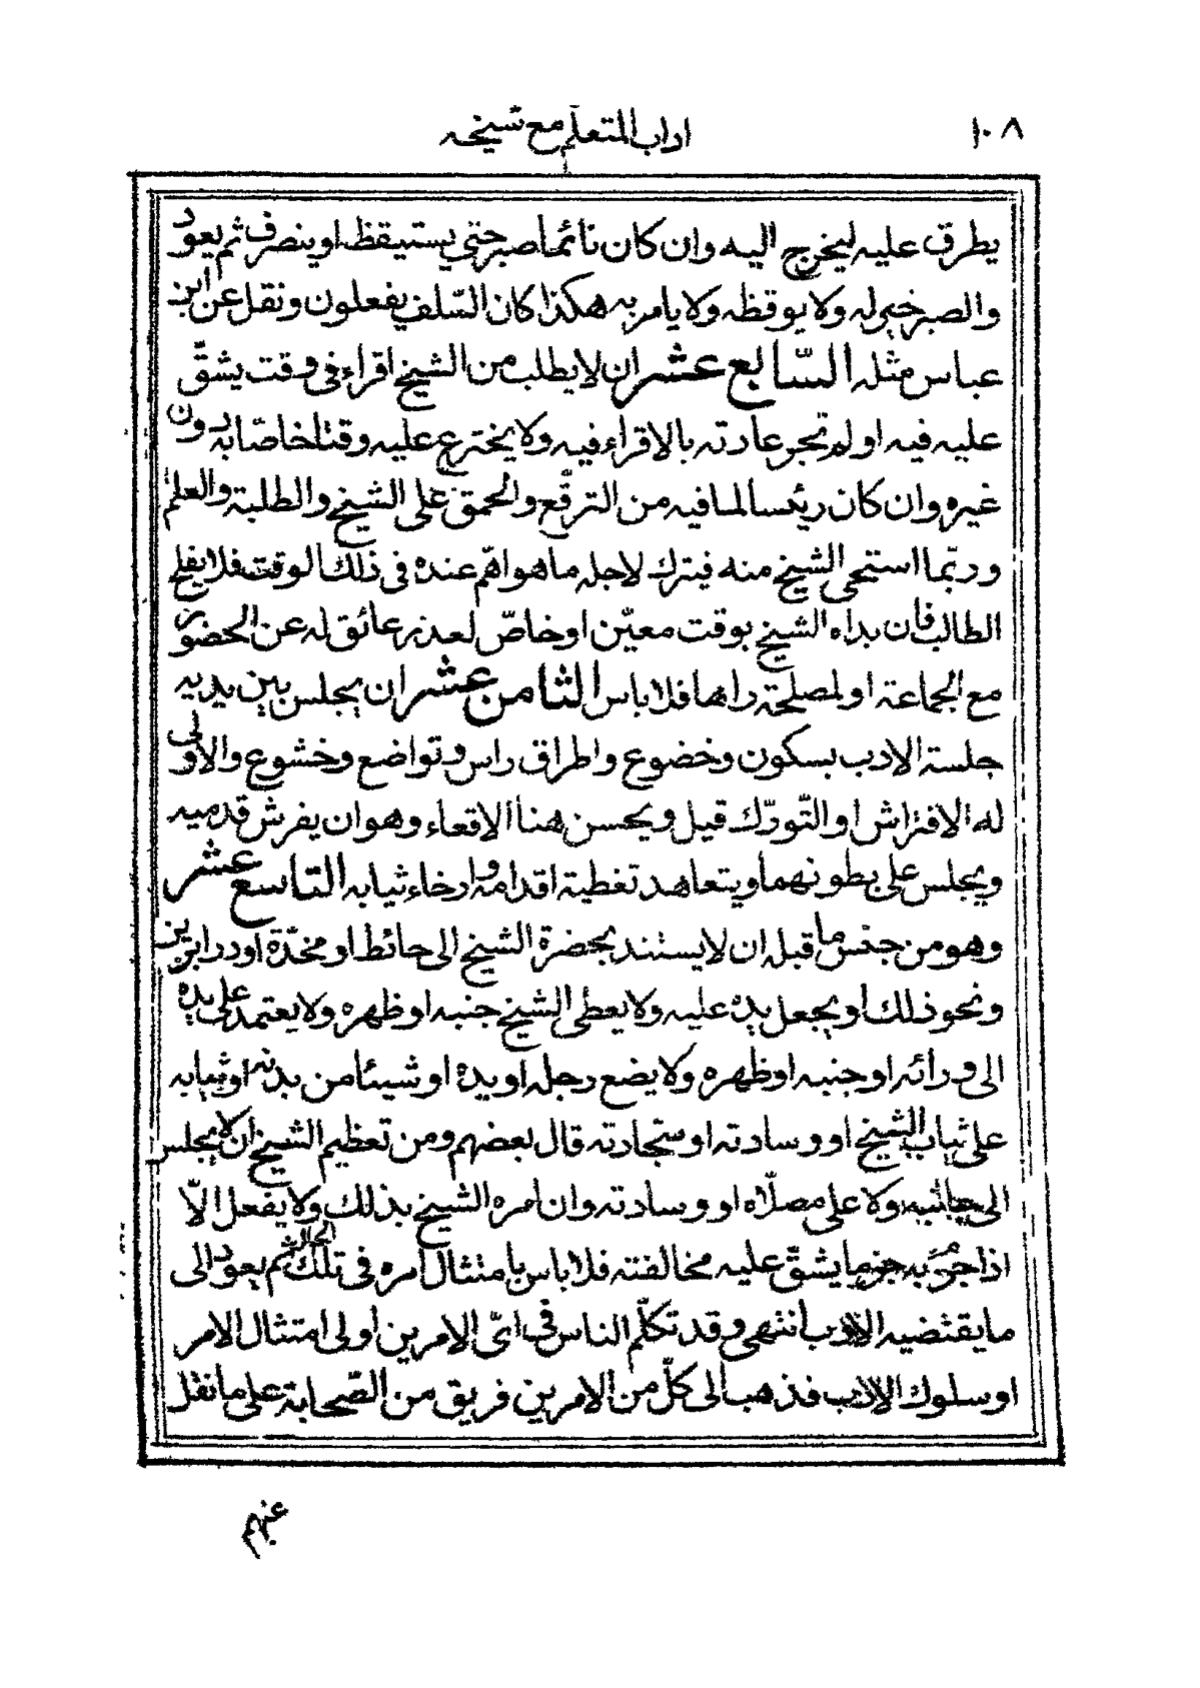 ١٠٨ اداب المتعلّم مع شيخه
يطرق عليه ليخرج اليه وان كان نائما صبر حتي يستيقظ او ينصرف ثم يعود
والصبر خير له ولا يوقظه ولا يامر به هكذا كان السّلف يفعلون ونقل عن ابن
عباس مثله السّابع عشر ان لا يطلب من الشيخ اقراء في وقت يشقّ
عليه فيه او لم تجر عادته بالاقراء فيه ولا يخترع عليه وقتا خاصّا به دون
غيره وان كان رئيسا لما فيه من الترفّع والحمق على الشيخ والطلبة والعلم
وربّما استحي الشيخ منه فيترك لاجله ما هو اهّم عنده في ذلك الوقت فلا يفلح
الطالب فان بداه الشيخ بوقت معيّن او خاصّ لعذر عائق له عن الحضور
مع الجماعة او لمصلحة راها فلا باس الثامن عشر ان يجلس بين يديه
جلسة الادب بسكون وخضوع واطراق راس وتواضع وخشوع والاولى
له الافتراش او التّورّك قيل ويحسن هنا الاقعاء وهو ان يفرش قدميه
ويجلس على بطونهما ويتعاهد تغطية اقدامه وارخاء ثيابه التاسع عشر
وهو من جنس ما قبله ان لا يستند بحضرة الشيخ الى حائط او مخدّة او درابزين
ونحو ذلك او يجعل يده عليه ولا يعطى الشيخ جنبه او ظهره ولا يعتمد على يده
الى ورائه او جنبه او ظهره ولا يضع رجله او يده او شيئا من بدنه او ثيابه
على ثياب الشيخ او وسادته او سجّادته قال بعضهم ومن تعظيم الشيخ ان لا يجلس
الى جانبه ولا على مصلّاه او وسادته وان امره الشيخ بذلك ولا يفعل الّا
اذا جزم به جزما يشقّ عليه مخالفته فلا باس بامتثال امره في تلك الحال ثم يعود الى
ما يقتضيه الادب انتهى وقد تكلّم الناس في ايّ الامرين اولى امتثال الامر
او سلوك الادب فذهب الى كلّ من الامرين فريق من الصّحابة على ما نقل
عنهم